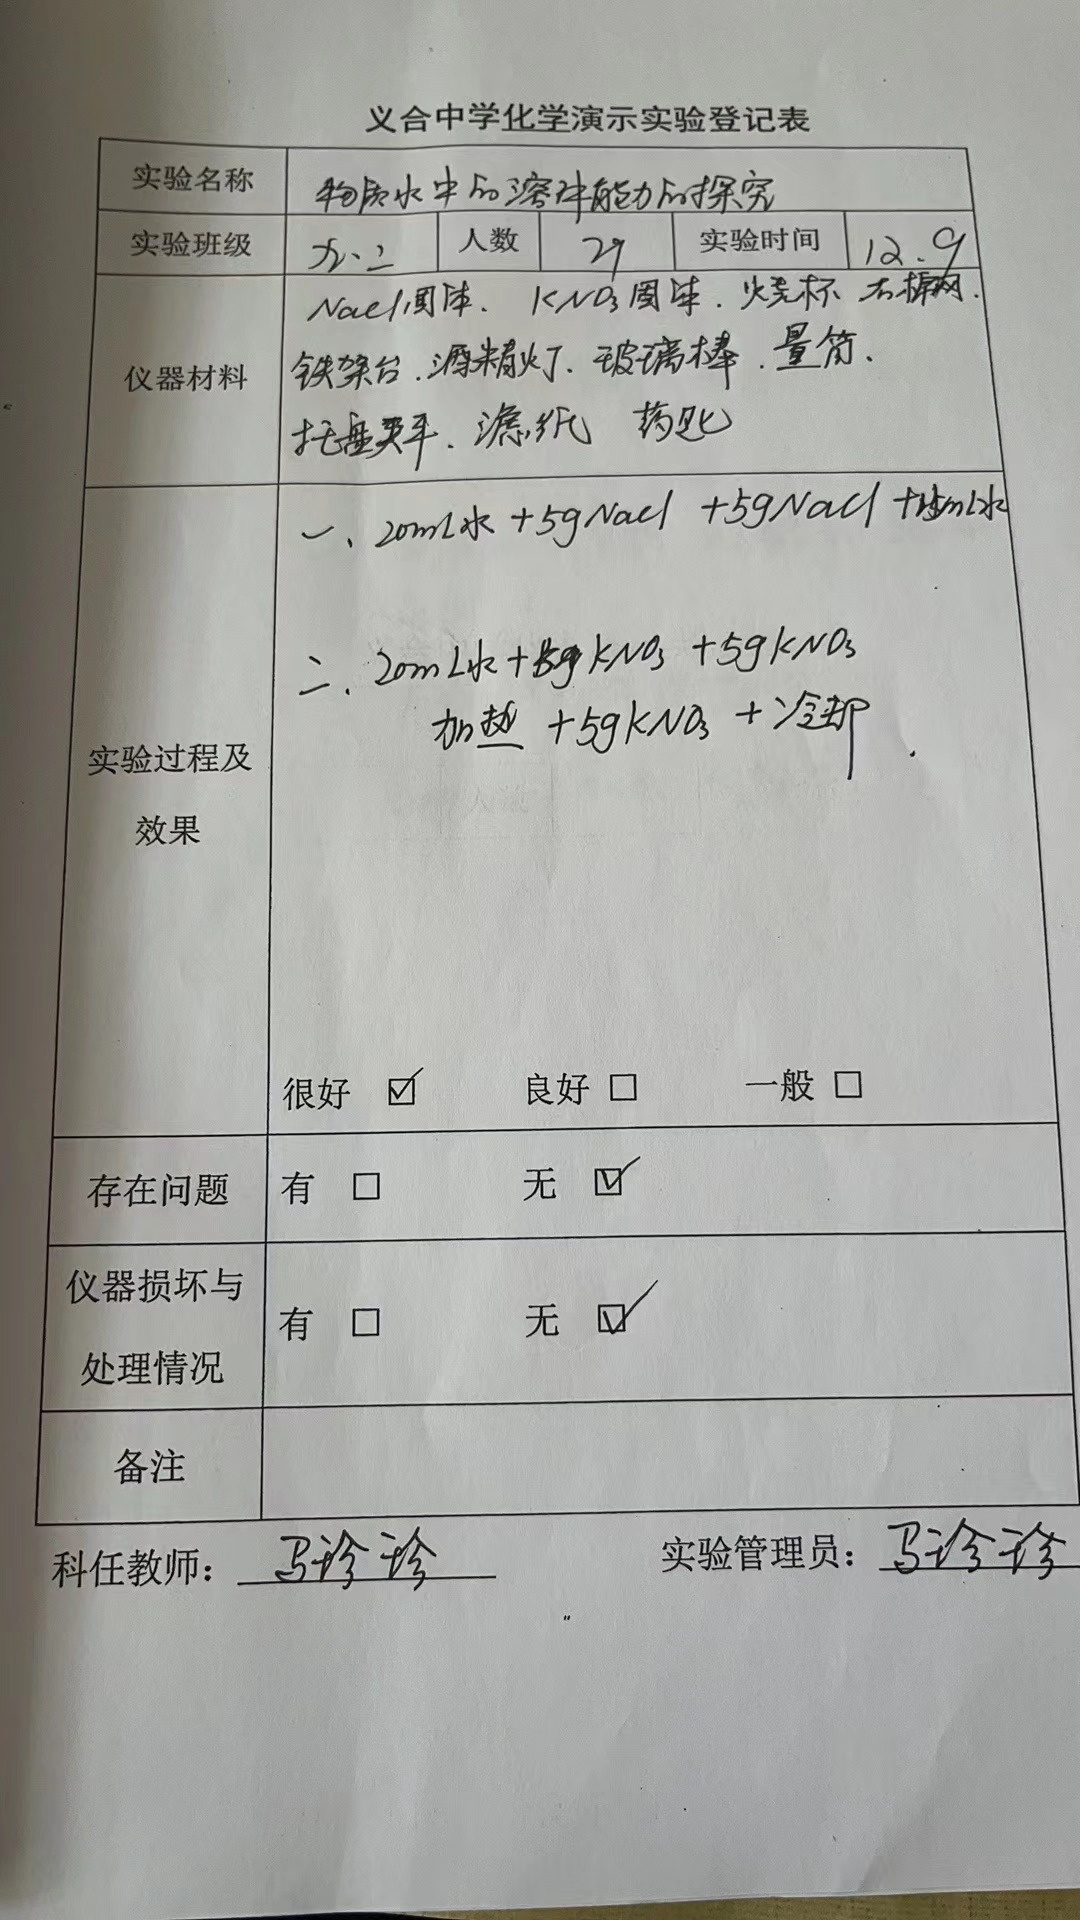 义合中学化学演示实验登记表
实验名称 物质水中的溶解能力的探究
实验班级 九.二 人数 29 实验时间 12.9
仪器材料
NaCl固体、KNO3固体.烧杯 石棉网.
铁架台.酒精灯.玻璃棒.量筒.
托盘天平.滤纸 药匙
一、20mL水+5gNaCl +5gNaCl +15mL水
二、20mL水+5gKNO3 +5gKNO3
加热 +5gKNO3 +冷却.
实验过程及
效果
很好 ☑ 良好 □ 一般 □
存在问题 有 □ 无 ☑
仪器损坏与
处理情况
有 □ 无 ☑
备注
科任教师：马珍珍 实验管理员：马珍珍